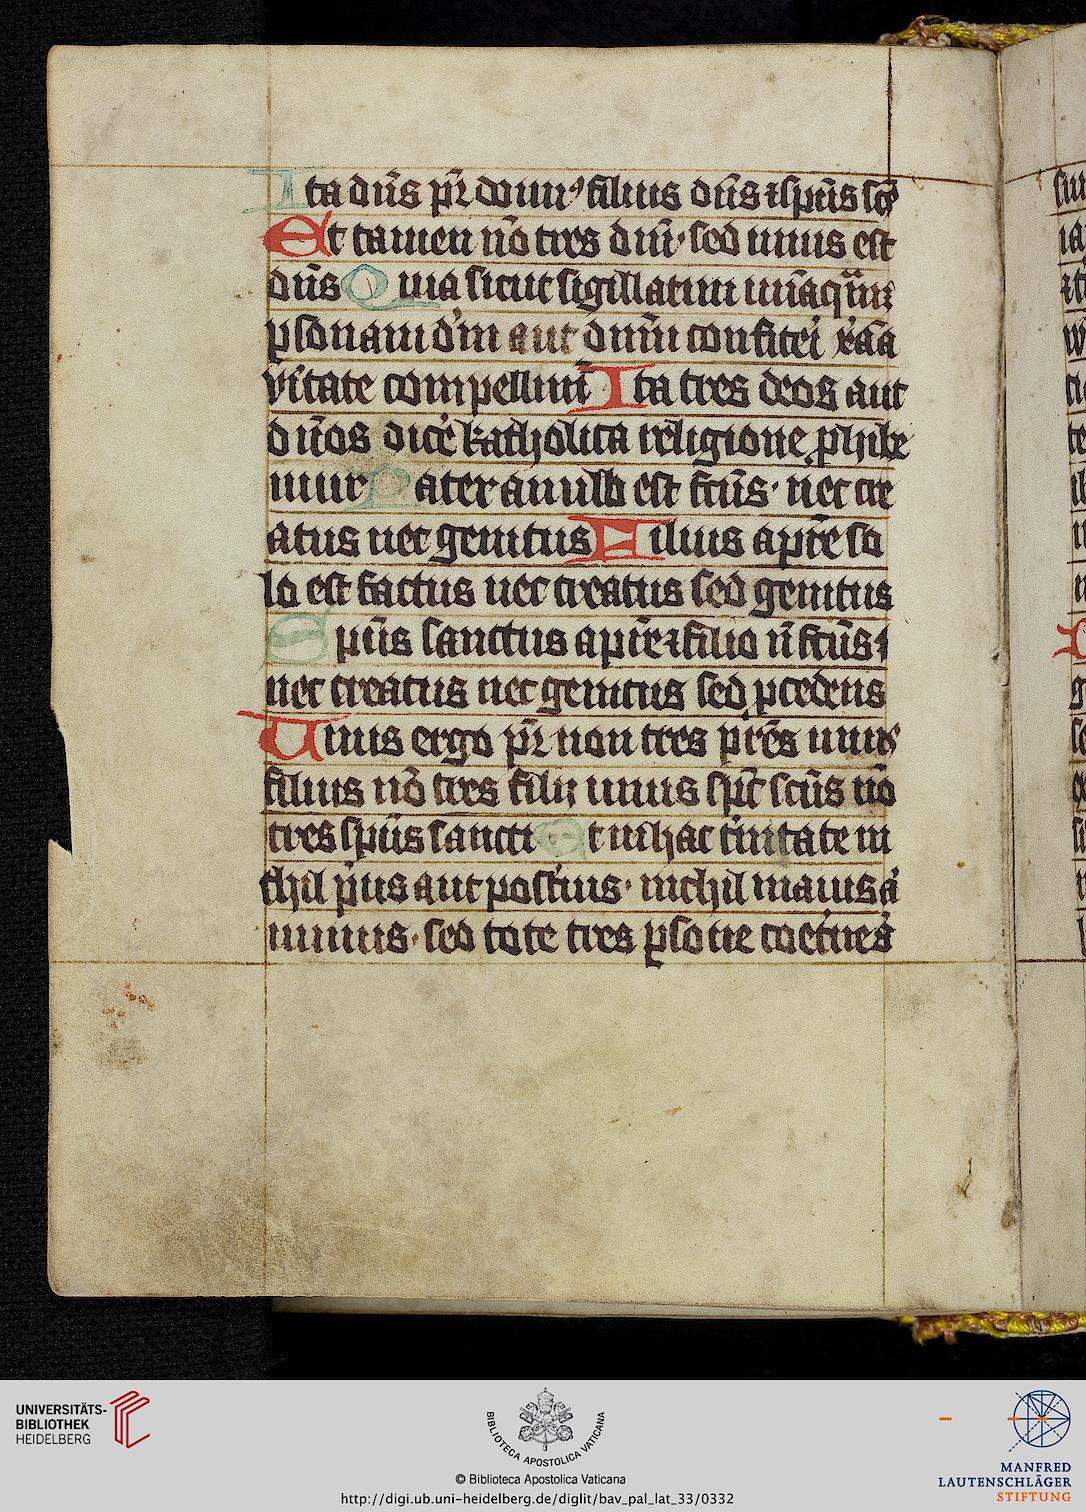 Ita dn̄s pr̄ domin⁹ filius dn̄s ⁊ spūs sc̄s
Et tamen nō tres dn̄i · sed unus est
dn̄s Quia sicut sigillatim unāq̄mꝫ
ꝑsonam dm̄ aut dnm̄ confiteri xp̄ana
v̓itate compellim̄ Ita tres deos aut
dn̄os dicē katholica religione ꝓhibe
mur Pater a nullo est fcūs · nec cre
atus nec genitus Filius a pr̄e so
lo est factus nec creatus sed genitus
Spūs sanctus a pr̄e ⁊ filio n̄ fcūs
nec creatus nec genitus sed ꝓcedens
Unus ergo pr̄ non tres pr̄es unus
filius nō tres filii unus spc̄ scūs nō
tres spūs sancti Et in hac tinitate ni
chil pius aut postius · nichil maius a̍
minus · sed tote tres ꝑsone coet̓nes
UNIVERSITÄTS-
BIBLIOTHEK
HEIDELBERG
BIBLIOTECA APOSTOLICA VATICANA
© Biblioteca Apostolica Vaticana
http://digi.ub.uni-heidelberg.de/diglit/bav_pal_lat_33/0332
MANFRED
LAUTENSCHLÄGER
STIFTUNG